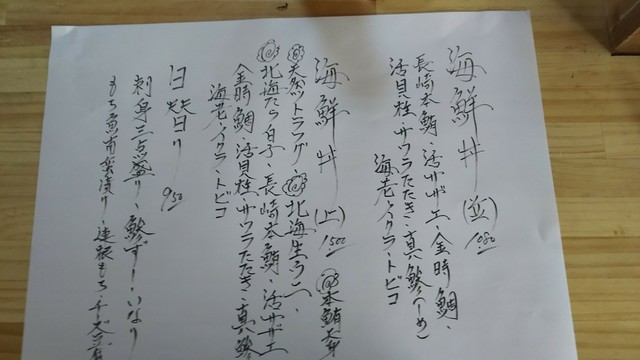 海鮮丼(並)1080
長崎本鮪・活サザエ・金時鯛・
活貝柱・サワラたたき・真鯵(〆め)
海老・イクラ・トビコ
海鮮丼(上)1500 本鮪上身
天然トラフグ 北海生うに・
北海たら白子・長崎本鮪・活サザエ
金時鯛・活貝柱・サワラたたき・真鯵
海老・イクラ・トビコ
日替り 950
刺身三点盛り・鯵ずし・いなり
もち・チーズ